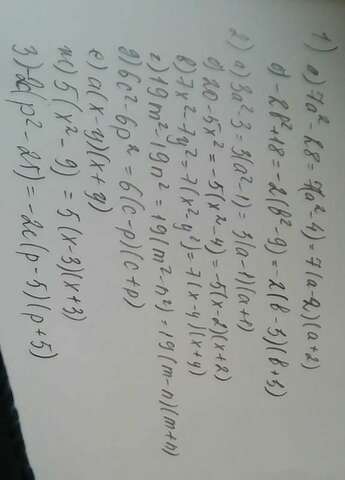 1) а) 7a²-28=7(a²-4)=7(a-2)(a+2)
б) -2b²+18=-2(b²-9)=-2(b-3)(b+3)
2) а) 3a²-3=3(a²-1)=3(a-1)(a+1)
б) 20-5x²=-5(x²-4)=-5(x-2)(x+2)
в) 7x²-7y²=7(x²-y²)=7(x-y)(x+y)
г) 19m²-19n²=19(m²-n²)=19(m-n)(m+n)
д) 6c²-6p²=6(c-p)(c+p)
е) a(x-y)(x+y)
ж) 5(x²-9)=5(x-3)(x+3)
з) -2c(p²-25)=-2c(p-5)(p+5)